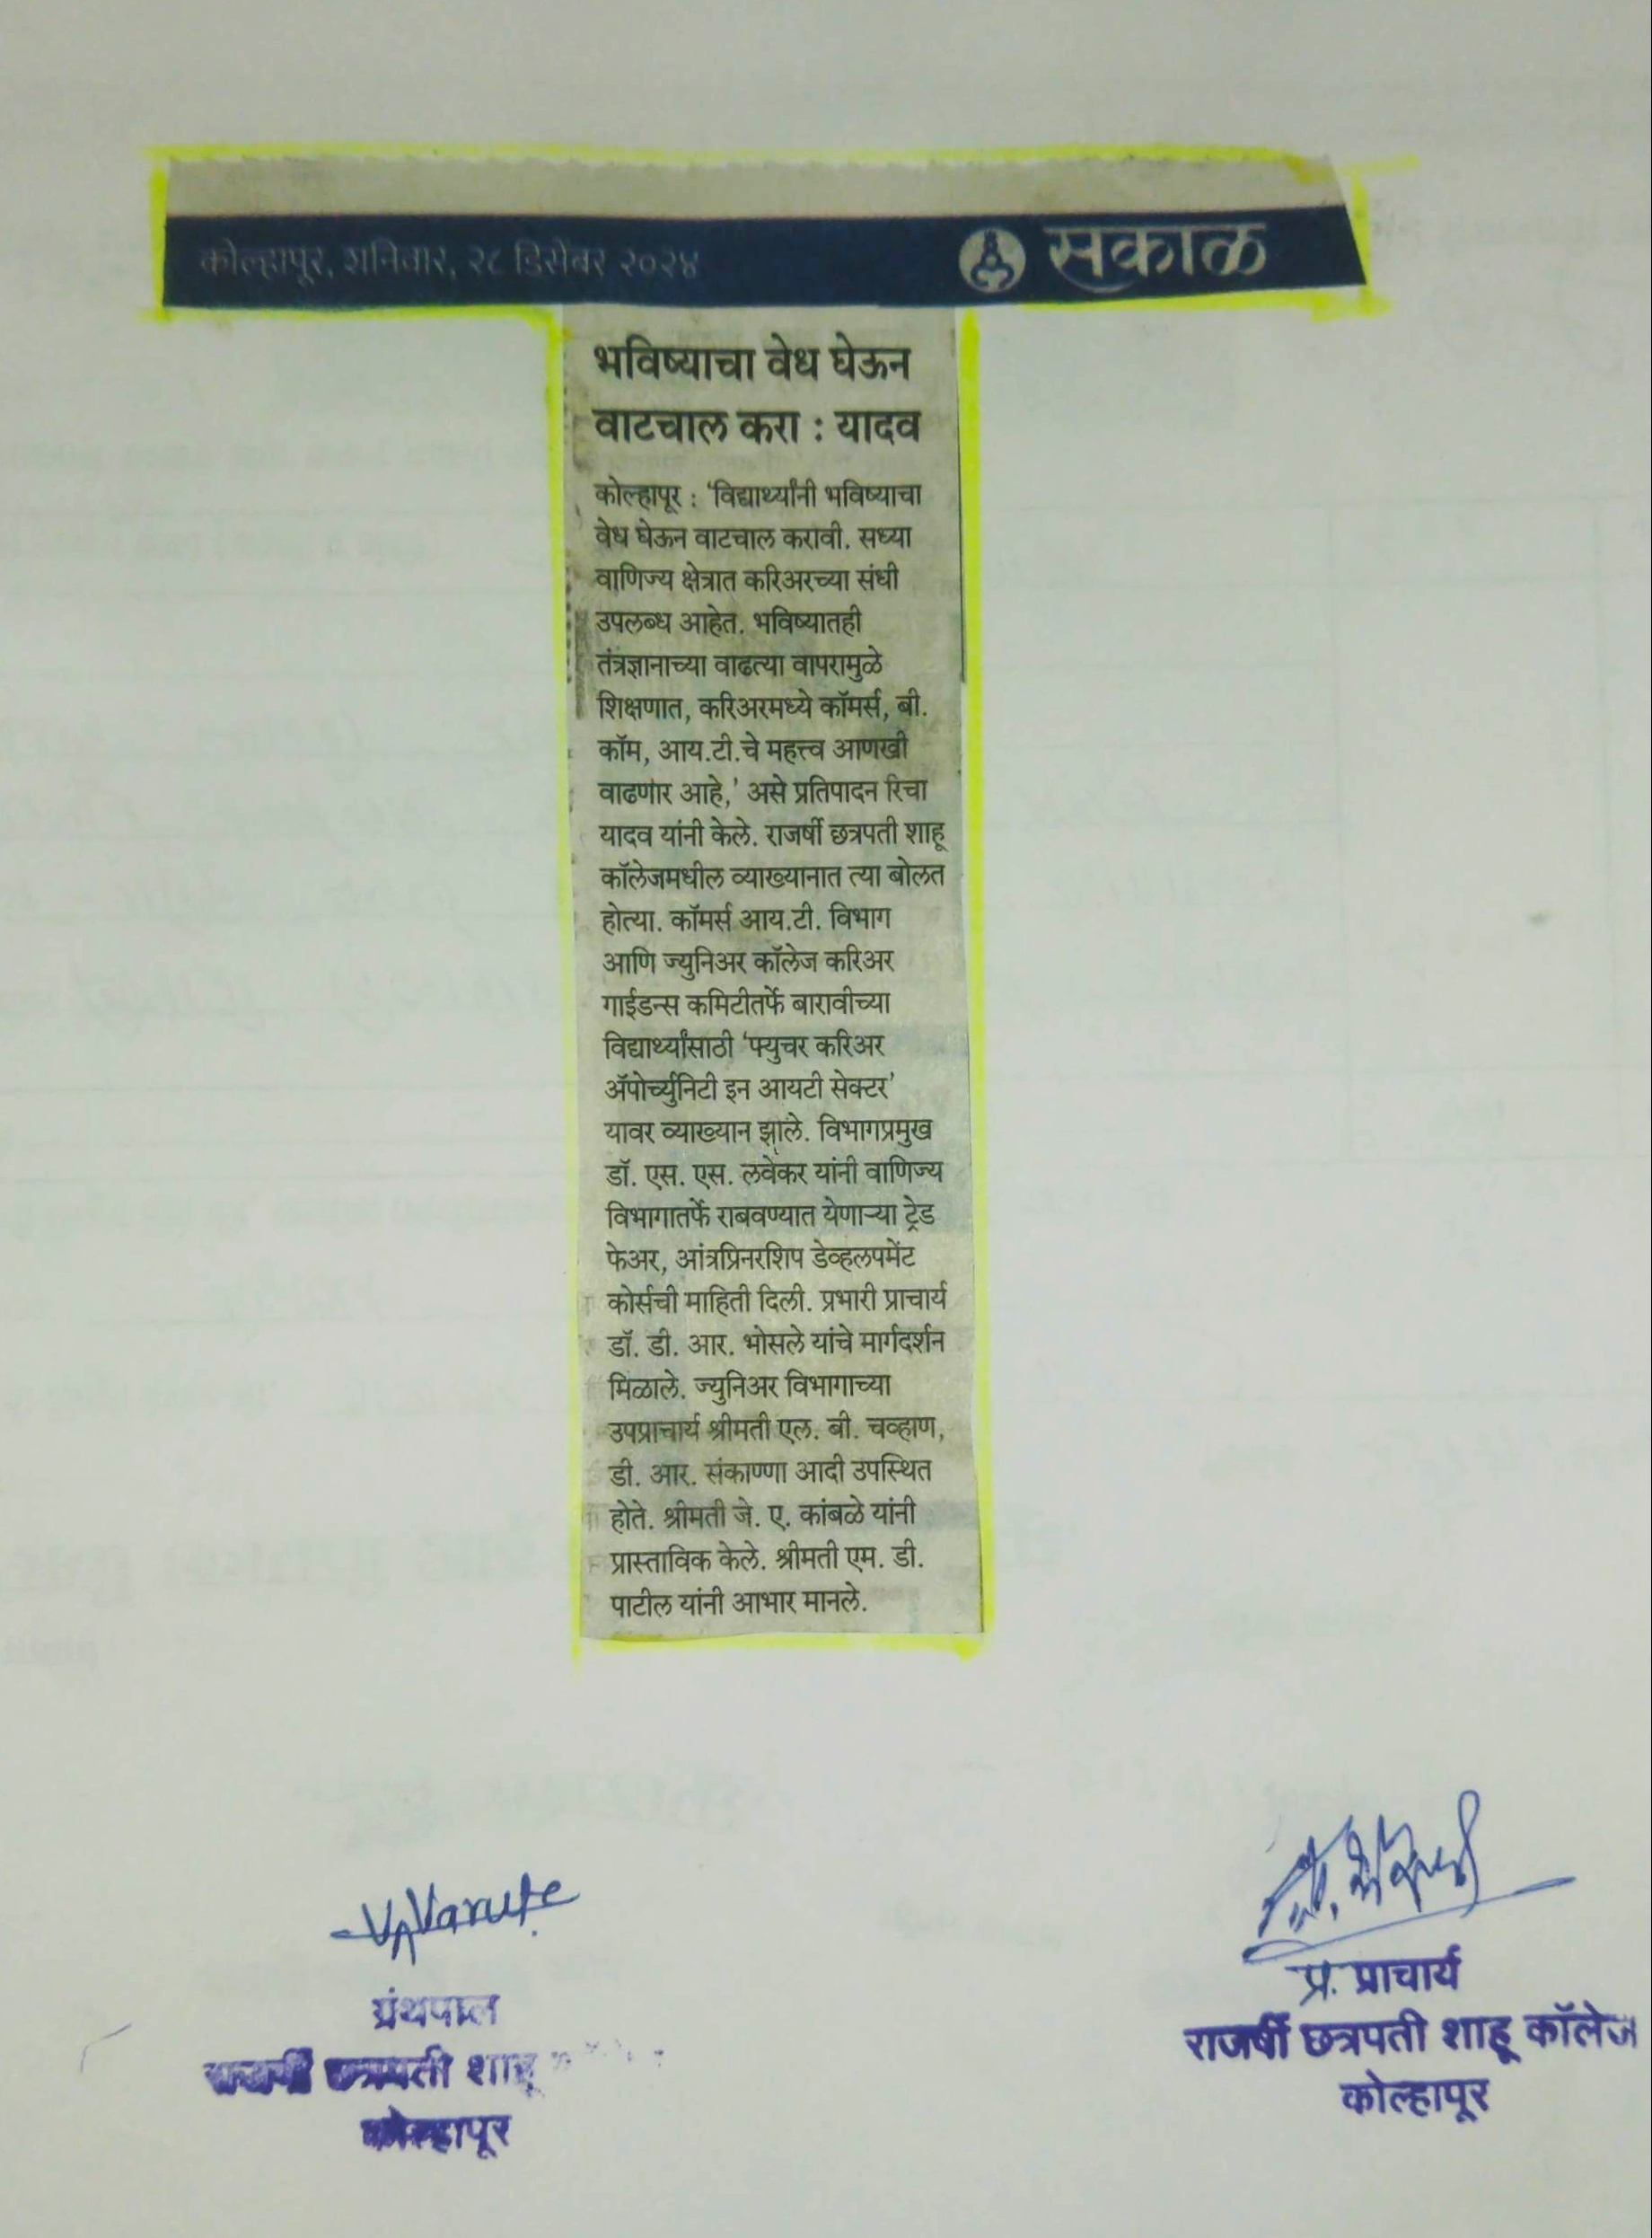 कोल्हापूर, शनिवार, २८ डिसेंबर २०२४ सकाळ
भविष्याचा वेध घेऊन
वाटचाल करा : यादव
कोल्हापूर : ‘विद्यार्थ्यांनी भविष्याचा
वेध घेऊन वाटचाल करावी. सध्या
वाणिज्य क्षेत्रात करिअरच्या संधी
उपलब्ध आहेत. भविष्यातही
तंत्रज्ञानाच्या वाढत्या वापरामुळे
शिक्षणात, करिअरमध्ये कॉमर्स, बी.
कॉम, आय.टी.चे महत्त्व आणखी
वाढणार आहे,’ असे प्रतिपादन रिचा
यादव यांनी केले. राजर्षी छत्रपती शाहू
कॉलेजमधील व्याख्यानात त्या बोलत
होत्या. कॉमर्स आय.टी. विभाग
आणि ज्युनिअर कॉलेज करिअर
गाईडन्स कमिटीतर्फे बारावीच्या
विद्यार्थ्यांसाठी ‘फ्युचर करिअर
ॲपोर्च्युनिटी इन आयटी सेक्टर’
यावर व्याख्यान झाले. विभागप्रमुख
डॉ. एस. एस. लवेकर यांनी वाणिज्य
विभागातर्फे राबवण्यात येणाऱ्या ट्रेड
फेअर, आंत्रप्रिनरशिप डेव्हलपमेंट
कोर्सची माहिती दिली. प्रभारी प्राचार्य
डॉ. डी. आर. भोसले यांचे मार्गदर्शन
मिळाले. ज्युनिअर विभागाच्या
उपप्राचार्य श्रीमती एल. बी. चव्हाण,
डी. आर. संकाण्णा आदी उपस्थित
होते. श्रीमती जे. ए. कांबळे यांनी
प्रास्ताविक केले. श्रीमती एम. डी.
पाटील यांनी आभार मानले.
VAVarute
ग्रंथपाल
राजर्षी छत्रपती शाहू
कोल्हापूर
प्र. प्राचार्य
राजर्षी छत्रपती शाहू कॉलेज
कोल्हापूर